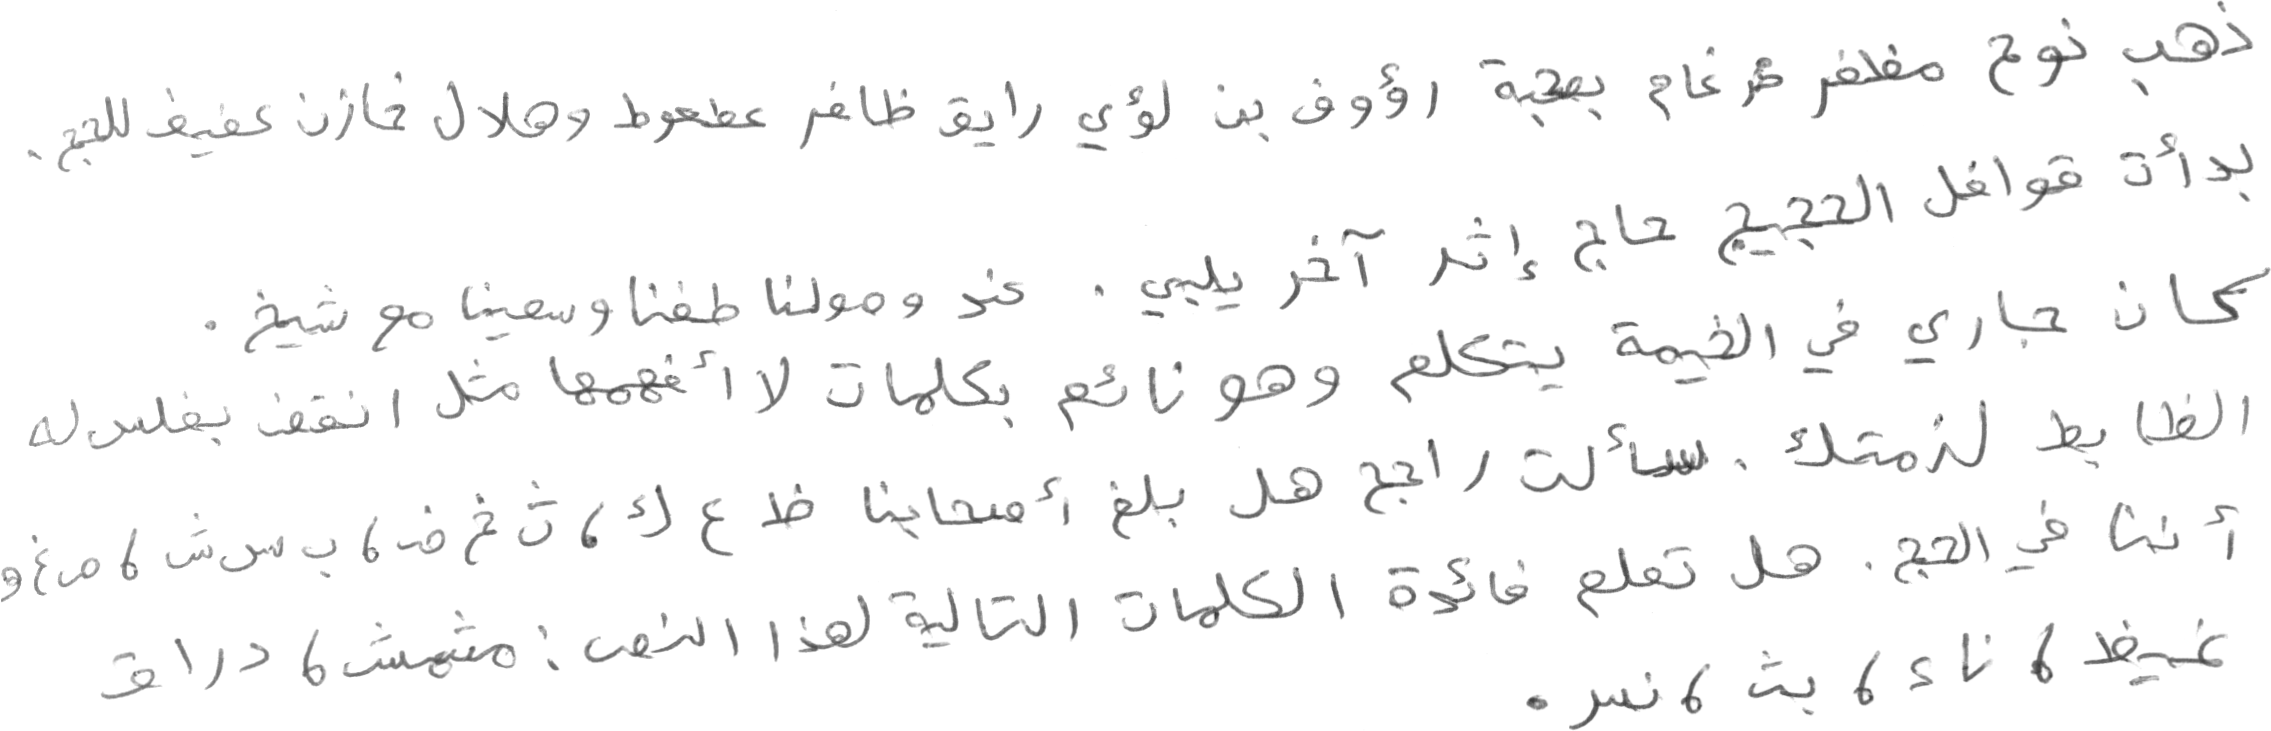 ذهب نوح مظفر ضرغام بصحبة رؤوف بن لؤي رايق ظافر عطعوط وهلال خازن عفيف للحج.
بدأت قوافل الحجيج حاج إثر آخر يلبي. عند وصولنا طفنا وسعينا مع شيخ.
كان جاري في الخيمة يتكلم وهو نائم بكلمات لا أفهمها مثل انقف بفلس له
الظابط لذمتك. سألت راجح هل بلغ أصحابنا ظ ع ك، ث خ ض، ب س ش، ص غ و
أننا في الحج. هل تعلم فائدة الكلمات التالية لهذا النص: مشمش، دراق
غيظ، ناء، بث، نسر.